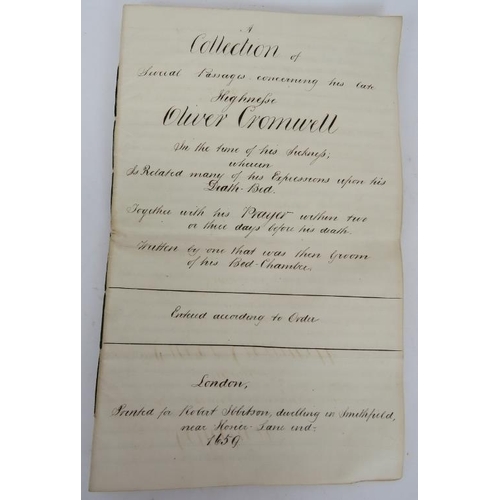 A
Collection of
Several Passages concerning his late
Highnesse
Oliver Cromwell
In the time of his Sickness;
wherein
Is Related many of his Expressions upon his
Death-Bed.
Together with his Prayer within two
or three days before his death.
Written by one that was then Groom
of his Bed-Chamber.
Entered according to Order
London,
Printed for Robert Ibbitson, dwelling in Smithfield,
near Hosier-Lane end.
1659